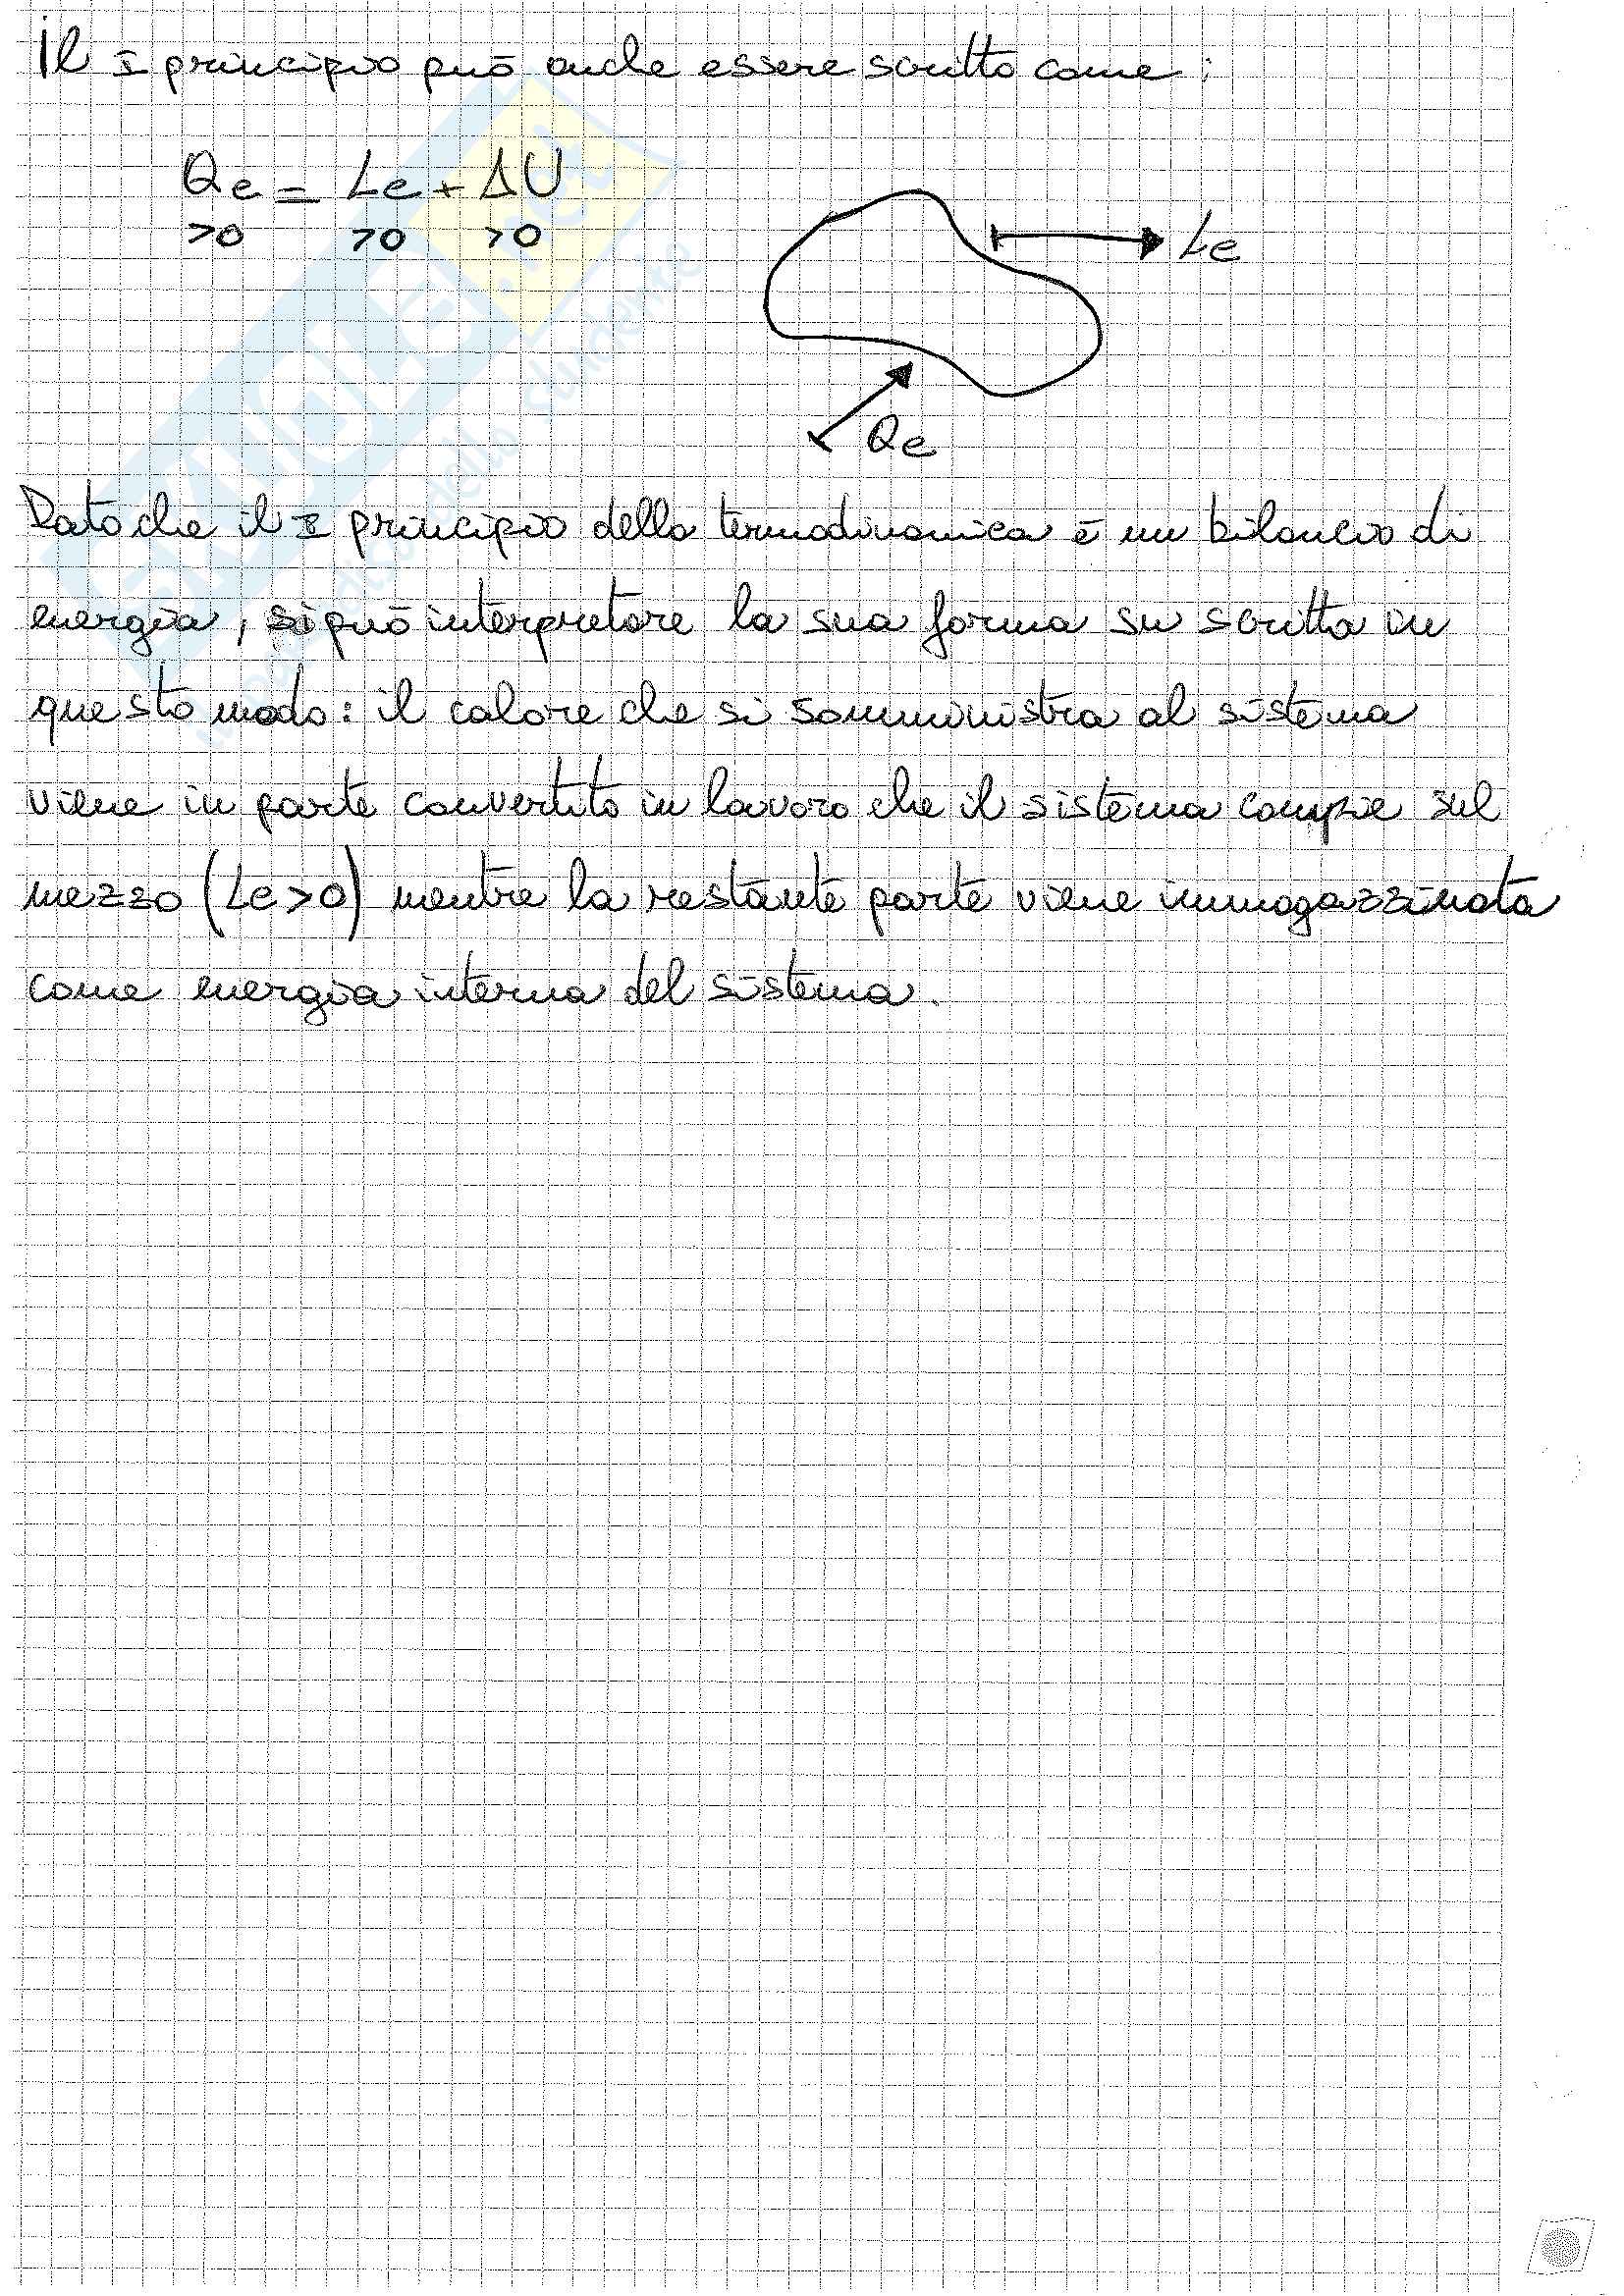 Il I principio può anche essere scritto come:
Qe = Le + ΔU
>0 >0 >0
Le
Qe
Dato che il I principio della termodinamica è un bilancio di
energia, si può interpretare la sua forma su scritta in
questo modo: il calore che si somministra al sistema
viene in parte convertito in lavoro che il sistema compie sul
mezzo (Le>0) mentre la restante parte viene immagazzinata
come energia interna del sistema.